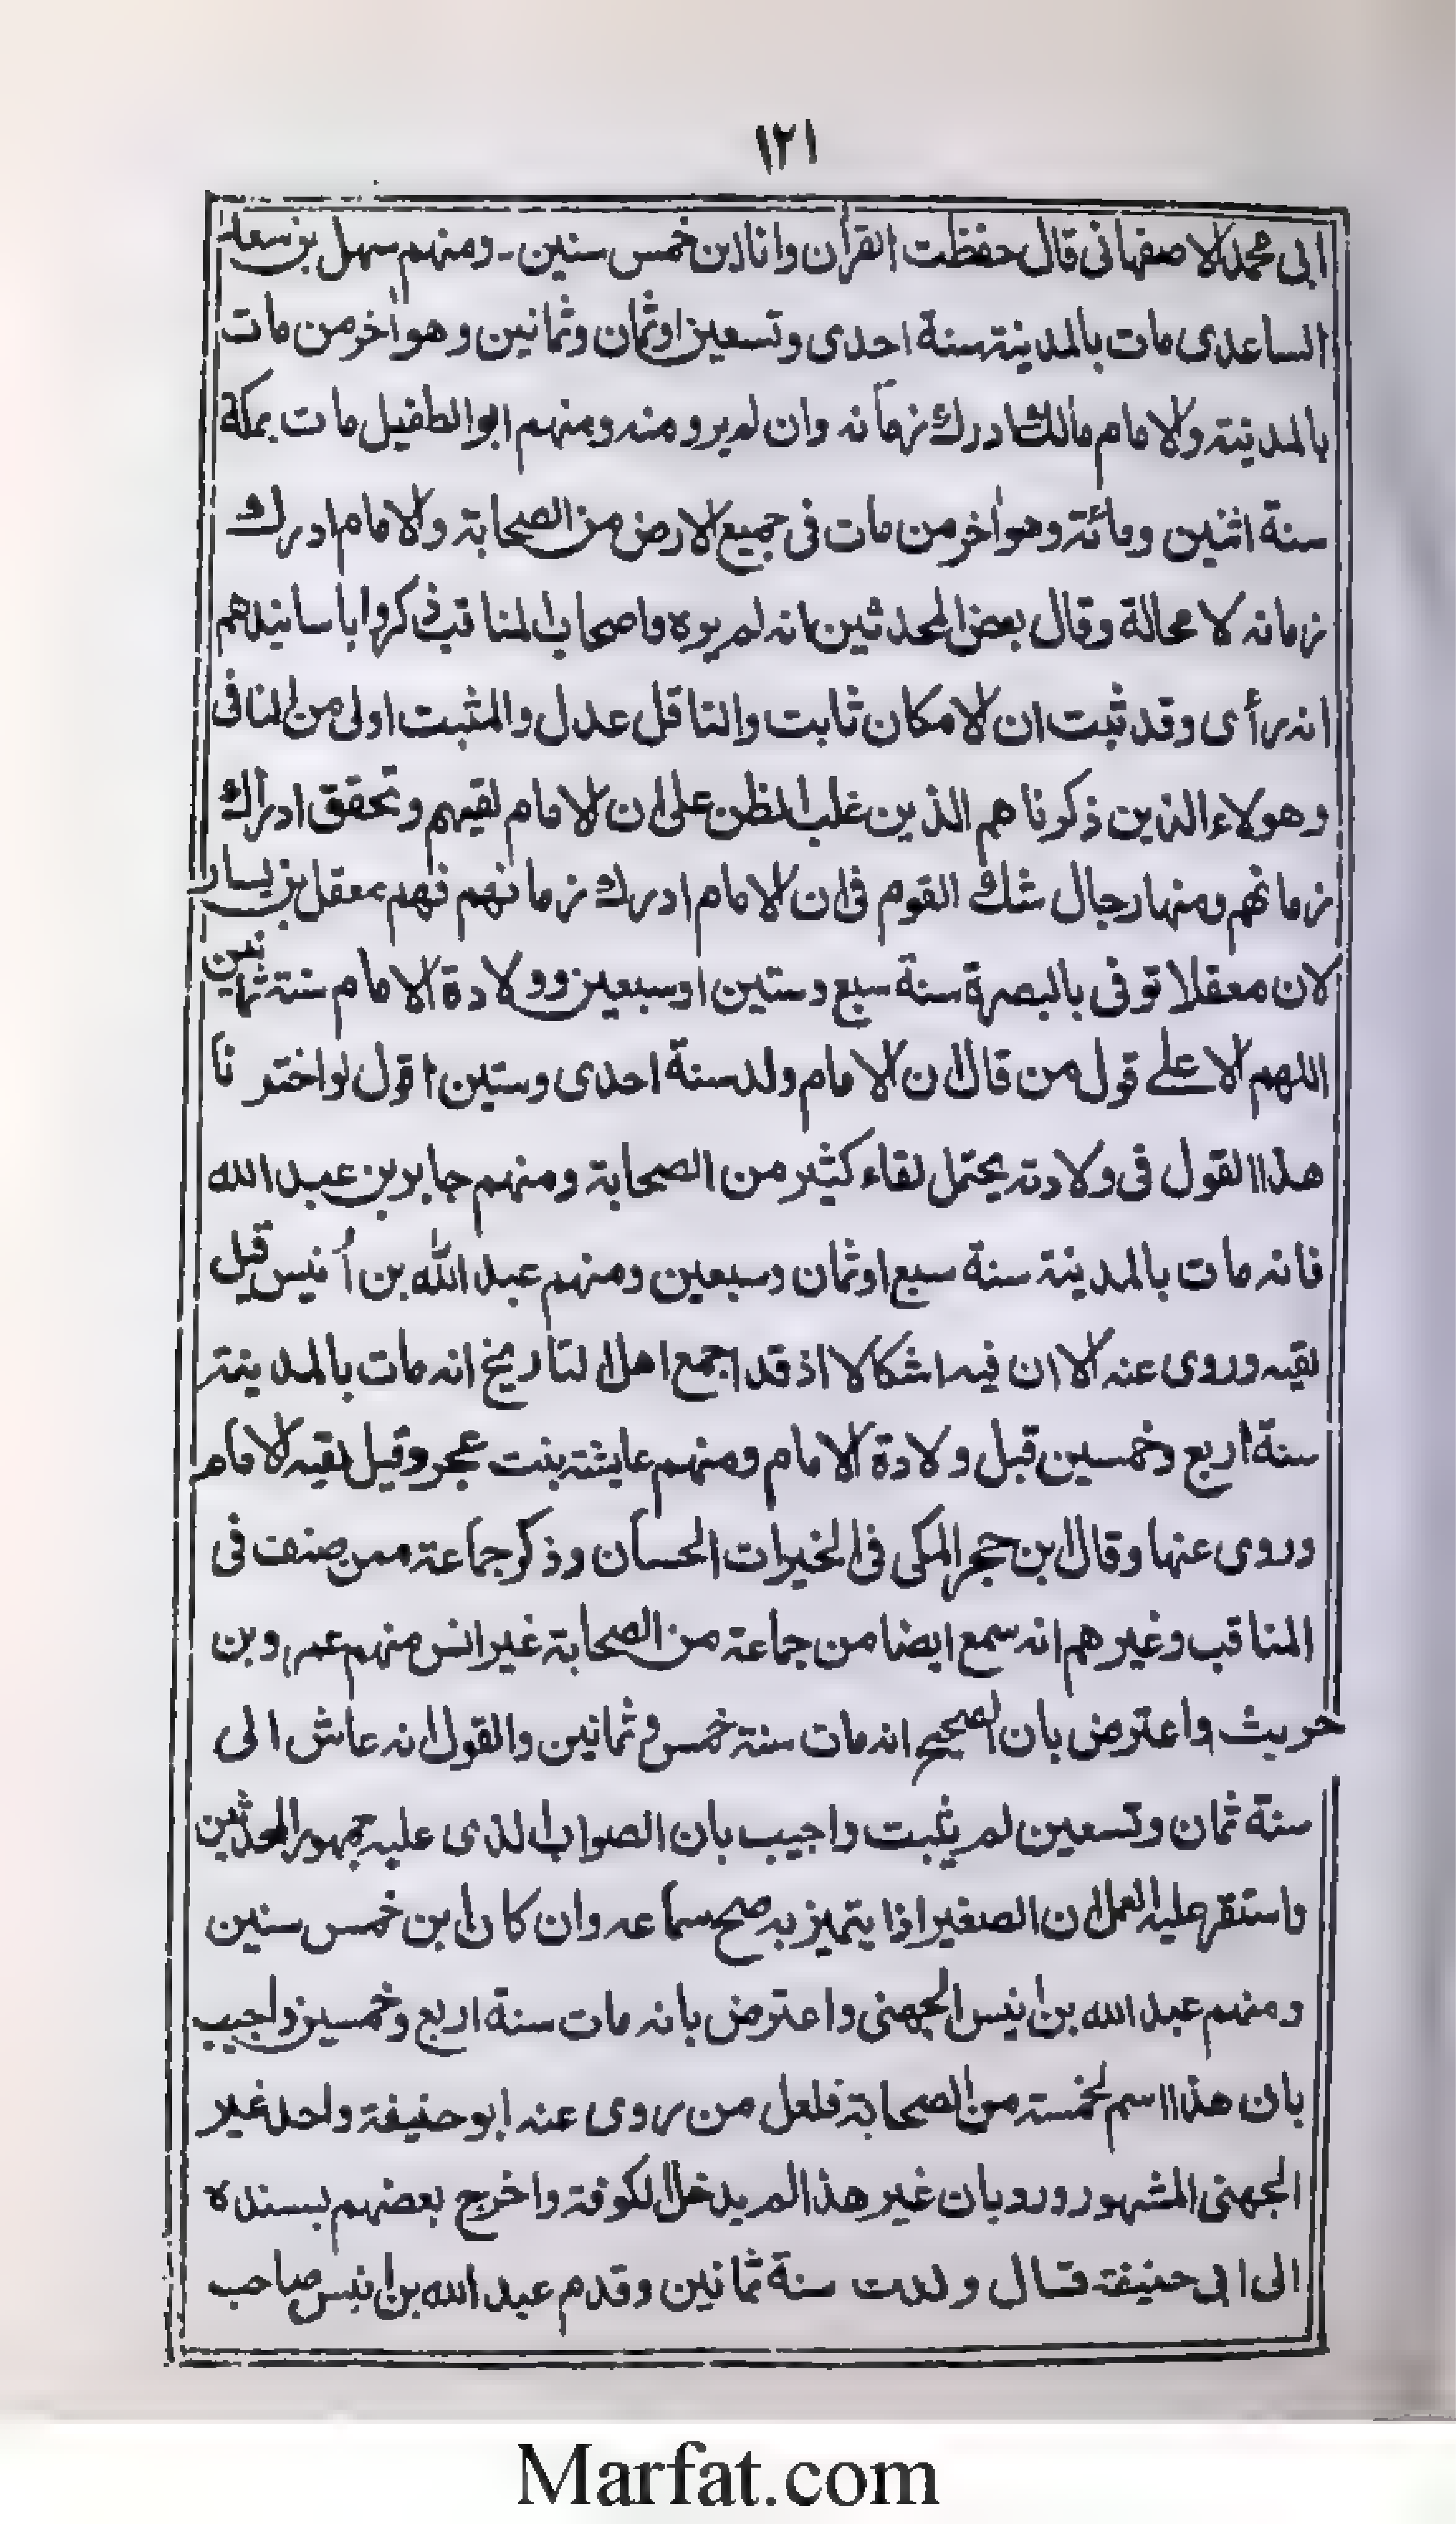 ١٢١
ابى محمد الاصفهانى قال حفظت القرآن وانا ابن خمس سنين ۔ ومنهم سهل بن سعد
الساعدى مات بالمدينة سنة احدى وتسعين او ثمان وثمانين وهو آخر من مات
بالمدينة والامام مالك ادرك زمانه وان لم يرو منه ومنهم ابو الطفيل مات بمكة
سنة اثنين ومائة وهو آخر من مات فى جميع الارض من الصحابة والامام ادرك
زمانه لا محالة وقال بعض المحدثين انه لم يره واصحاب المناقب ذكروا باسانيدهم
انه رأى وقد ثبت ان الامكان ثابت والناقل عدل والمثبت اولى من النافى
وهولاء الذين ذكرنا هم الذين غلب الظن على ان الامام لقيهم وتحقق ادراك
زمانهم ومنها رجال شك القوم فى ان الامام ادرك زمانهم فهم معقل بن يسار
لان معقلا توفى بالبصرة سنة سبع وستين او سبعين وولادة الامام سنة ثمانين
اللهم الا على قول من قال ان الامام ولد سنة احدى وستين اقول لو اخترنا
هذا القول فى ولادته يحتمل لقاء كثير من الصحابة ومنهم جابر بن عبد الله
فانه مات بالمدينة سنة سبع او ثمان وسبعين ومنهم عبد الله بن أنيس قيل
لقيه وروى عنه الا ان فيه اشكالا اذ قد اجمع اهل التاريخ انه مات بالمدينة
سنة اربع وخمسين قبل ولادة الامام ومنهم عايشة بنت عجر وقيل لقيه الامام
وروى عنها وقال ابن حجر المكى فى الخيرات الحسان وذكر جماعة ممن صنف فى
المناقب وغيرهم انه سمع ايضا من جماعة من الصحابة غير انس منهم عمرو بن
حريث واعترض بان الصحيح انه مات سنة خمس وثمانين والقول انه عاش الى
سنة ثمان وتسعين لم يثبت واجيب بان الصواب الذى عليه جمهور المحدثين
واستقر عليه العمل ان الصغير اذا يتميز به صح سماعه وان كان ابن خمس سنين
ومنهم عبد الله بن انيس الجهنى واعترض بانه مات سنة اربع وخمسين واجيب
بان هذا اسم لخمسة من الصحابة فلعل من روى عنه ابو حنيفة واحد غير
الجهنى المشهور ورد بان غير هذا لم يدخل الكوفة واخرج بعضهم بسنده
الى ابى حنيفة قال ولدت سنة ثمانين وقدم عبد الله بن انيس صاحب
Marfat.com